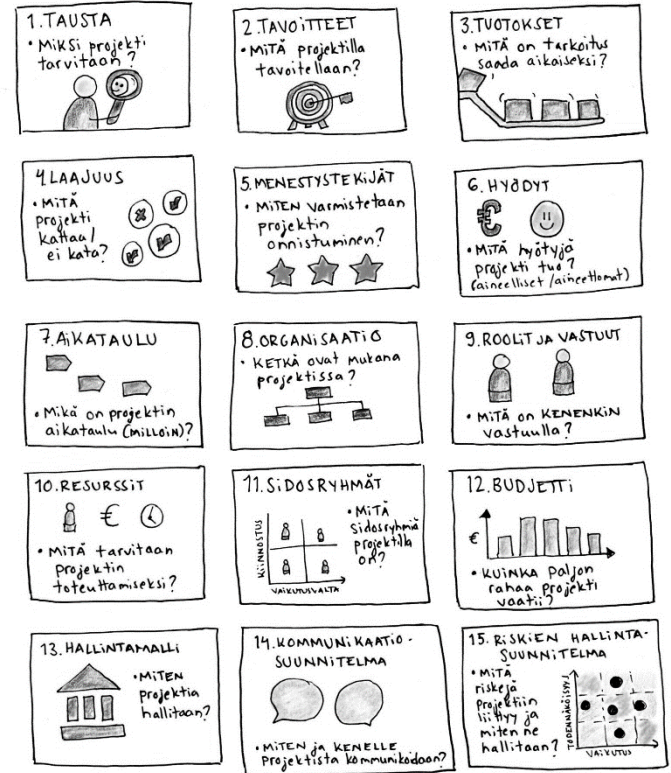 1. TAUSTA
• MIKSI projekti
tarvitaan?
2. TAVOITTEET
• MITÄ projektilla
tavoitellaan?
3. TUOTOKSET
• MITÄ on tarkoitus
saada aikaiseksi?
4. LAAJUUS
• MITÄ
projekti
kattaa/
ei kata?
5. MENESTYSTEKIJÄT
• MITEN varmistetaan
projektin
onnistuminen?
6. HYÖDYT
€
• MITÄ hyötyjä
projekti tuo?
(aineelliset/aineettomat)
7. AIKATAULU
• Mikä on projektin
aikataulu (MILLOIN)?
8. ORGANISAATIO
• KETKÄ ovat mukana
projektissa?
9. ROOLIT JA VASTUUT
• MITÄ on KENENKIN
vastuulla?
10. RESURSSIT
€
• MITÄ tarvitaan
projektin
toteuttamiseksi?
11. SIDOSRYHMÄT
• MITÄ
sidosryhmiä
projektilla
on?
KIINNOSTUS
VAIKUTUSVALTA
12. BUDJETTI
€
• KUINKA paljon
rahaa projekti
vaatii?
13. HALLINTAMALLI
• MITEN
projektia
hallitaan?
14. KOMMUNIKAATIO-
SUUNNITELMA
• MITEN ja KENELLE
projektista kommunikoidaan?
15. RISKIEN HALLINTA-
SUUNNITELMA
• MITÄ
riskejä
projektiin
liittyy ja
miten ne
hallitaan?
TODENNÄKÖISYYS
VAIKUTUS